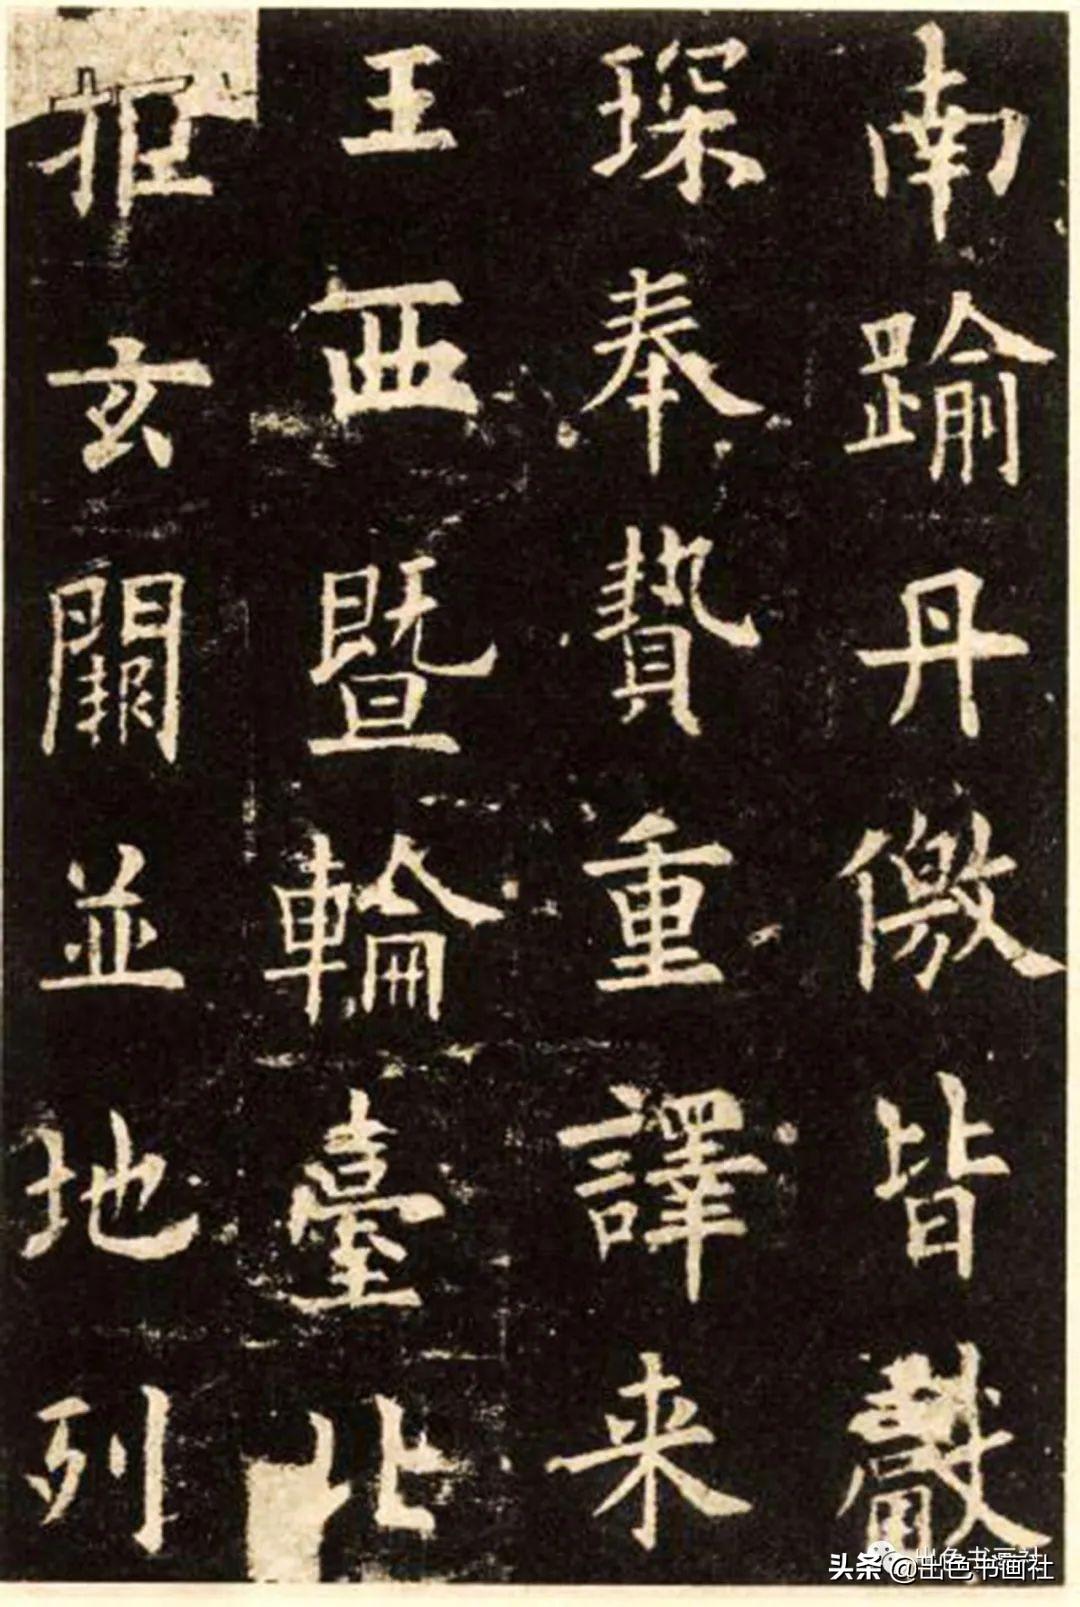 南踰丹儌皆獻
琛奉贄重譯来
王西暨輪臺北
拒玄闕並地列
出色书画社
头条@出色书画社